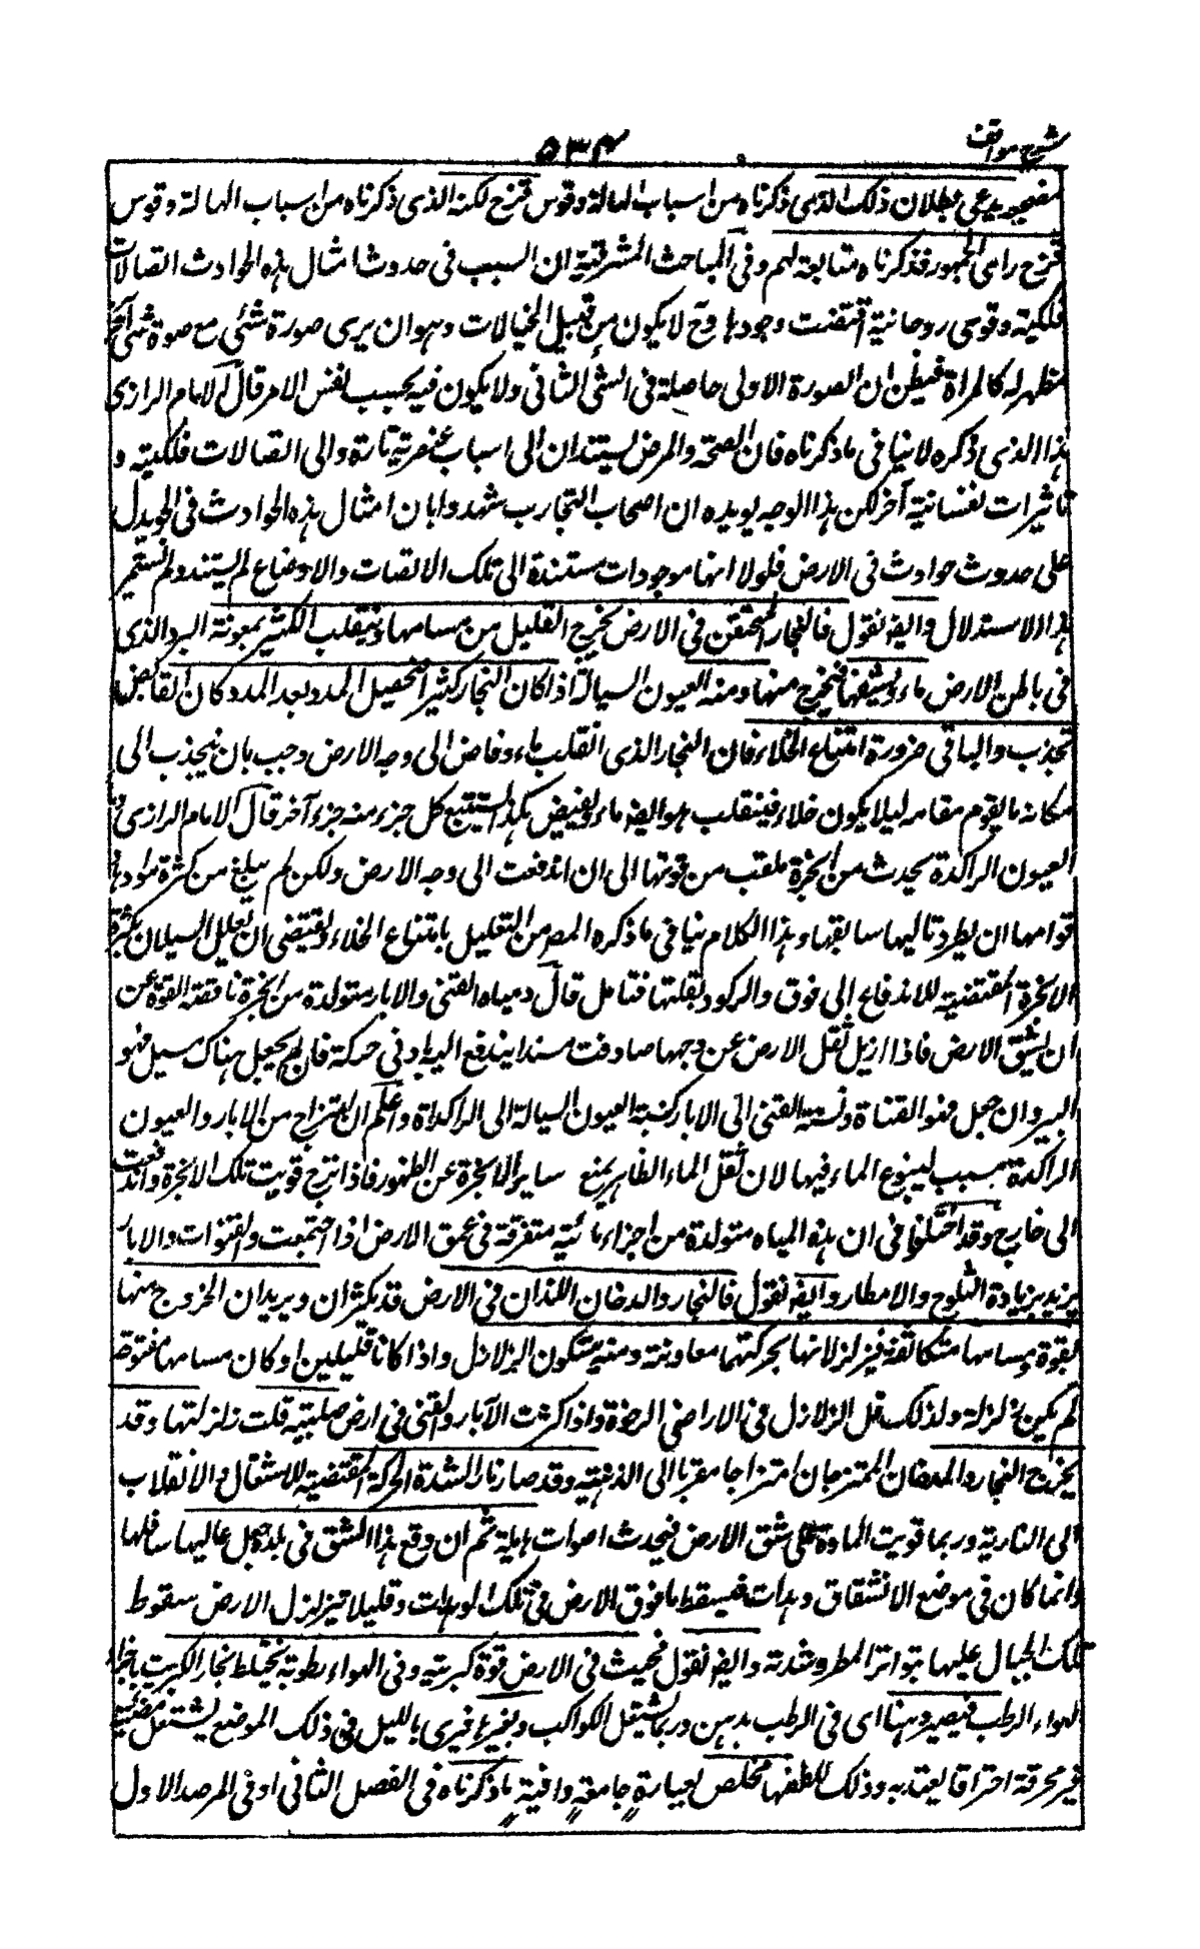 شرح مواقف
۵۳۴
فتجويد على بطلان ذلك الذى ذكرناه من اسباب الهالة وقوس قزح لكنه الذى ذكرناه من اسباب الهالة وقوس
قزح راى الجمهور فذكرناه متابعة لهم وفى المباحث المشرقية ان السبب فى حدوث امثال هذه الحوادث اتصالات
فلكية وقوى روحانية اقتضت وجودها وح لا يكون من قبيل الخيالات وهو ان يرى صورة شئى مع صورة شئى آخر
مظهر له كالمراة فيظن ان الصورة الاولى حاصلة فى الشئى الثانى ولا يكون فيه بحسب نفس الامر قال الامام الرازى
هذا الذى ذكره لا ينافى ما ذكرناه فان الصحة والمرض يستندان الى اسباب عنصرية تارة والى اتصالات فلكية و
تاثيرات نفسانية آخر لكن هذا الوجه يويده ان اصحاب التجارب شهدوا بان امثال هذه الحوادث فى الجو يدل
على حدوث حوادث فى الارض فلولا انها موجودات مستندة الى تلك الاتصالات والاوضاع لم يستند ولم يستمر
هذا الاستدلال وايضا نقول فالبخار المحتقن فى الارض يخرج القليل من مسامها وينقلب الكثير بمعونة البرد الذى
فى باطن الارض ماء ويشقها فيخرج منها ومنه العيون السيالة اذا كان البخار كثيرا لتحصيل المدد بعد المدد كان الفائض
يجذب والباقى ضرورة امتناع الخلاء فان البخار الذى انقلب ماء وفاض الى وجه الارض وجب بان ينجذب الى
مكانه ما يقوم مقامه ليلا يكون خلاء فينقلب هو ايضا ماء ويفيض هكذا استتبع كل جزء منه جزء آخر قال الامام الرازى
العيون الراكدة يحدث من ابخرة بلغت من قوتها الى ان اندفعت الى وجه الارض ولكن لم يبلغ من كثرة موادها
قوامها ان يطرد تاليها سابقها وهذا الكلام ينافى ما ذكره المص من التعليل بامتناع الخلاء ويقتضى ان يعلل السيلان بكثرة
الابخرة المقتضية للاندفاع الى فوق والركود بقلتها فتامل قال ومياه القنى والابار متولدة من ابخرة ناقصة القوة عن
ان يشق الارض فاذا ازيل ثقل الارض عن وجهها صادفت مسندا يندفع اليه باد فى حركة فان لم يجعل هناك مسيل فهو
البير وان جعل فهو القناة ونسبة القنى الى الابار كنسبة العيون السيالة الى الراكدة واعلم ان النزاح من الابار والعيون
الراكدة سبب لينبوع الماء فيها لان ثقل الماء الظاهر يمنع ساير الابخرة عن الظهور فاذا نزح قويت تلك الابخرة واندفعت
الى خارج وقد اختلفوا فى ان هذه المياه متولدة من اجزاء مائية متفرقة فى عمق الارض اذا اجتمعت والقنوات والابار
يزيد بزيادة الثلوج والامطار وايضا نقول فالبخار والدخان اللذان فى الارض قد يكثران ويريدان الخروج منها
بقوة ومسامها متكاثفة فيزلزلانها بحركتهما معاونة ومنه يتكون الزلازل واذا كانا قليلين او كان مسامها مفتوحة
لم يكن زلزلة ولذلك قل الزلازل فى الاراضى الرخوة واذا كثرت الآبار والقنى فى ارض صلبة قلت زلزلتها وقد
يخرج البخار والدخان الممتزجان امتزاجا مقربا الى الذهنية وقد صار نارا لشدة الحركة المقتضية للاشتعال والانقلاب
الى النارية وربما قويت المادة على شق الارض فيحدث اصوات هايلة ثم ان وقع هذا الشق فى بلدة جعل عاليها سافلها
وانما كان فى موضع الانشقاق وهدات فيسقط ما فوق الارض فى تلك الوهدات وقليلا تتزلزل الارض سقوط
تلك الجبال عليها بتواتر المطر وشدته وايضا نقول فحيث فى الارض قوة كبريتية وفى الهواء رطوبة يختلط بخار الكبريت باجزاء
الهواء الرطب فيصير دهنا اى فى الرطب بدهن وربما يشتعل الكواكب وبغيرها فيرى بالليل فى ذلك الموضع يشتعل مضيئة
غير محرقة احتراقا يعتد به وذلك للطفها مخلص بعبارة جامعة وافية ما ذكرناه فى الفصل الثانى او فى المرصد الاول